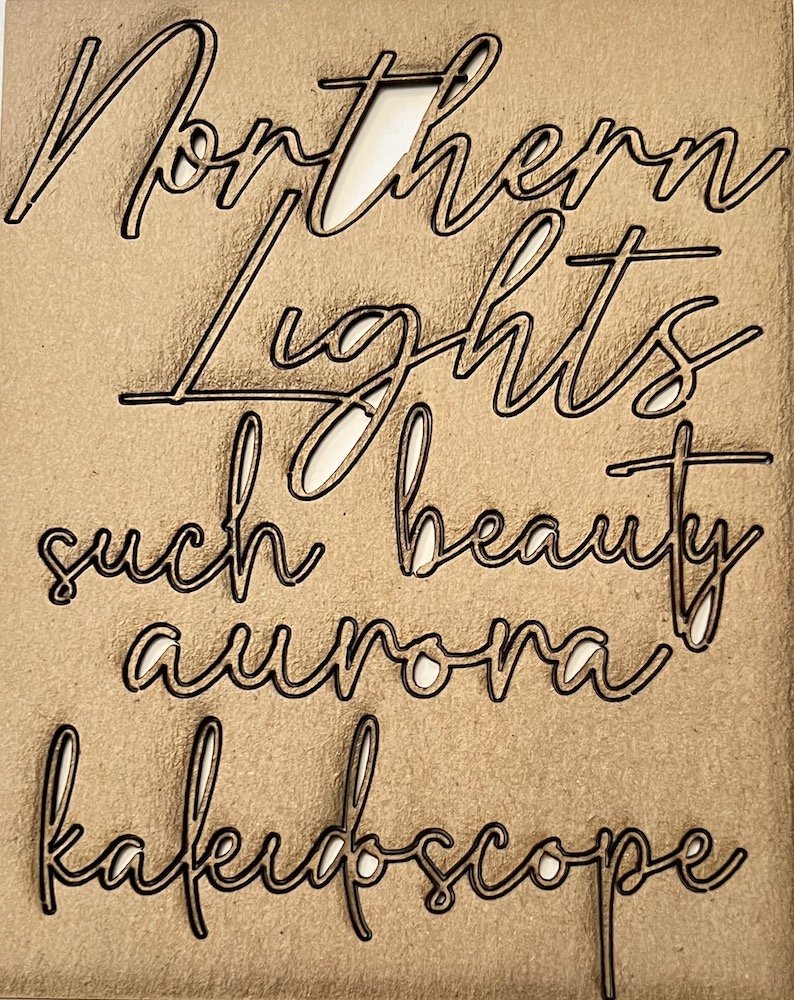 Northern
Lights
such beauty
aurora
kaleidoscope